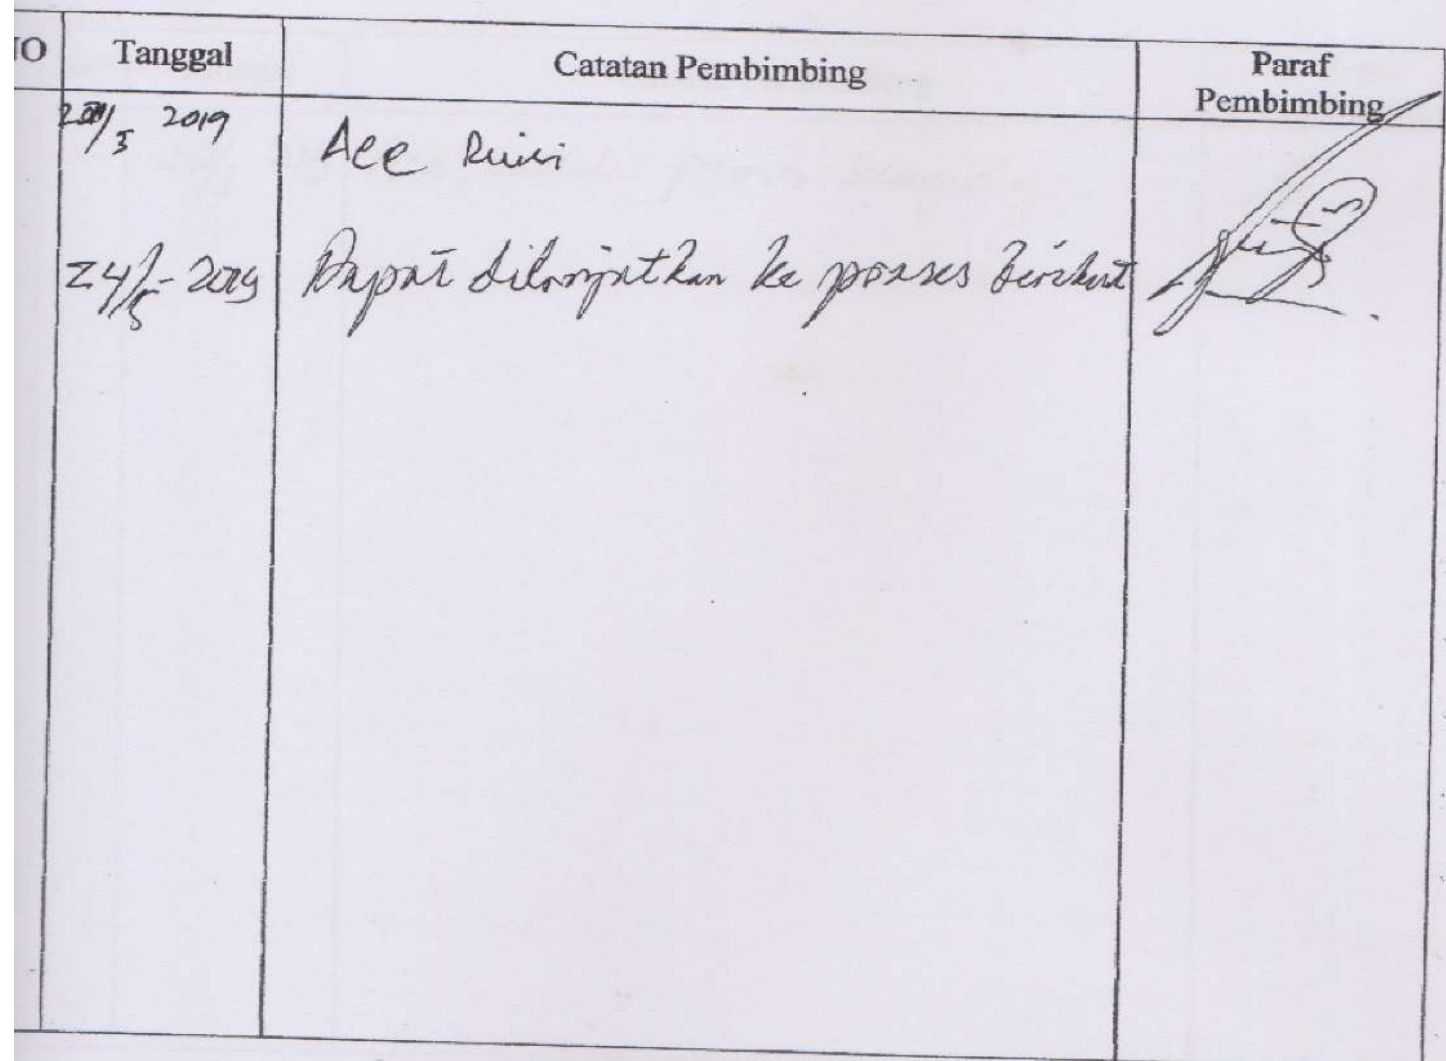 NO Tanggal Catatan Pembimbing Paraf
Pembimbing
2019 Acc
24/5-2019 Dapat dilanjutkan ke proses berikut